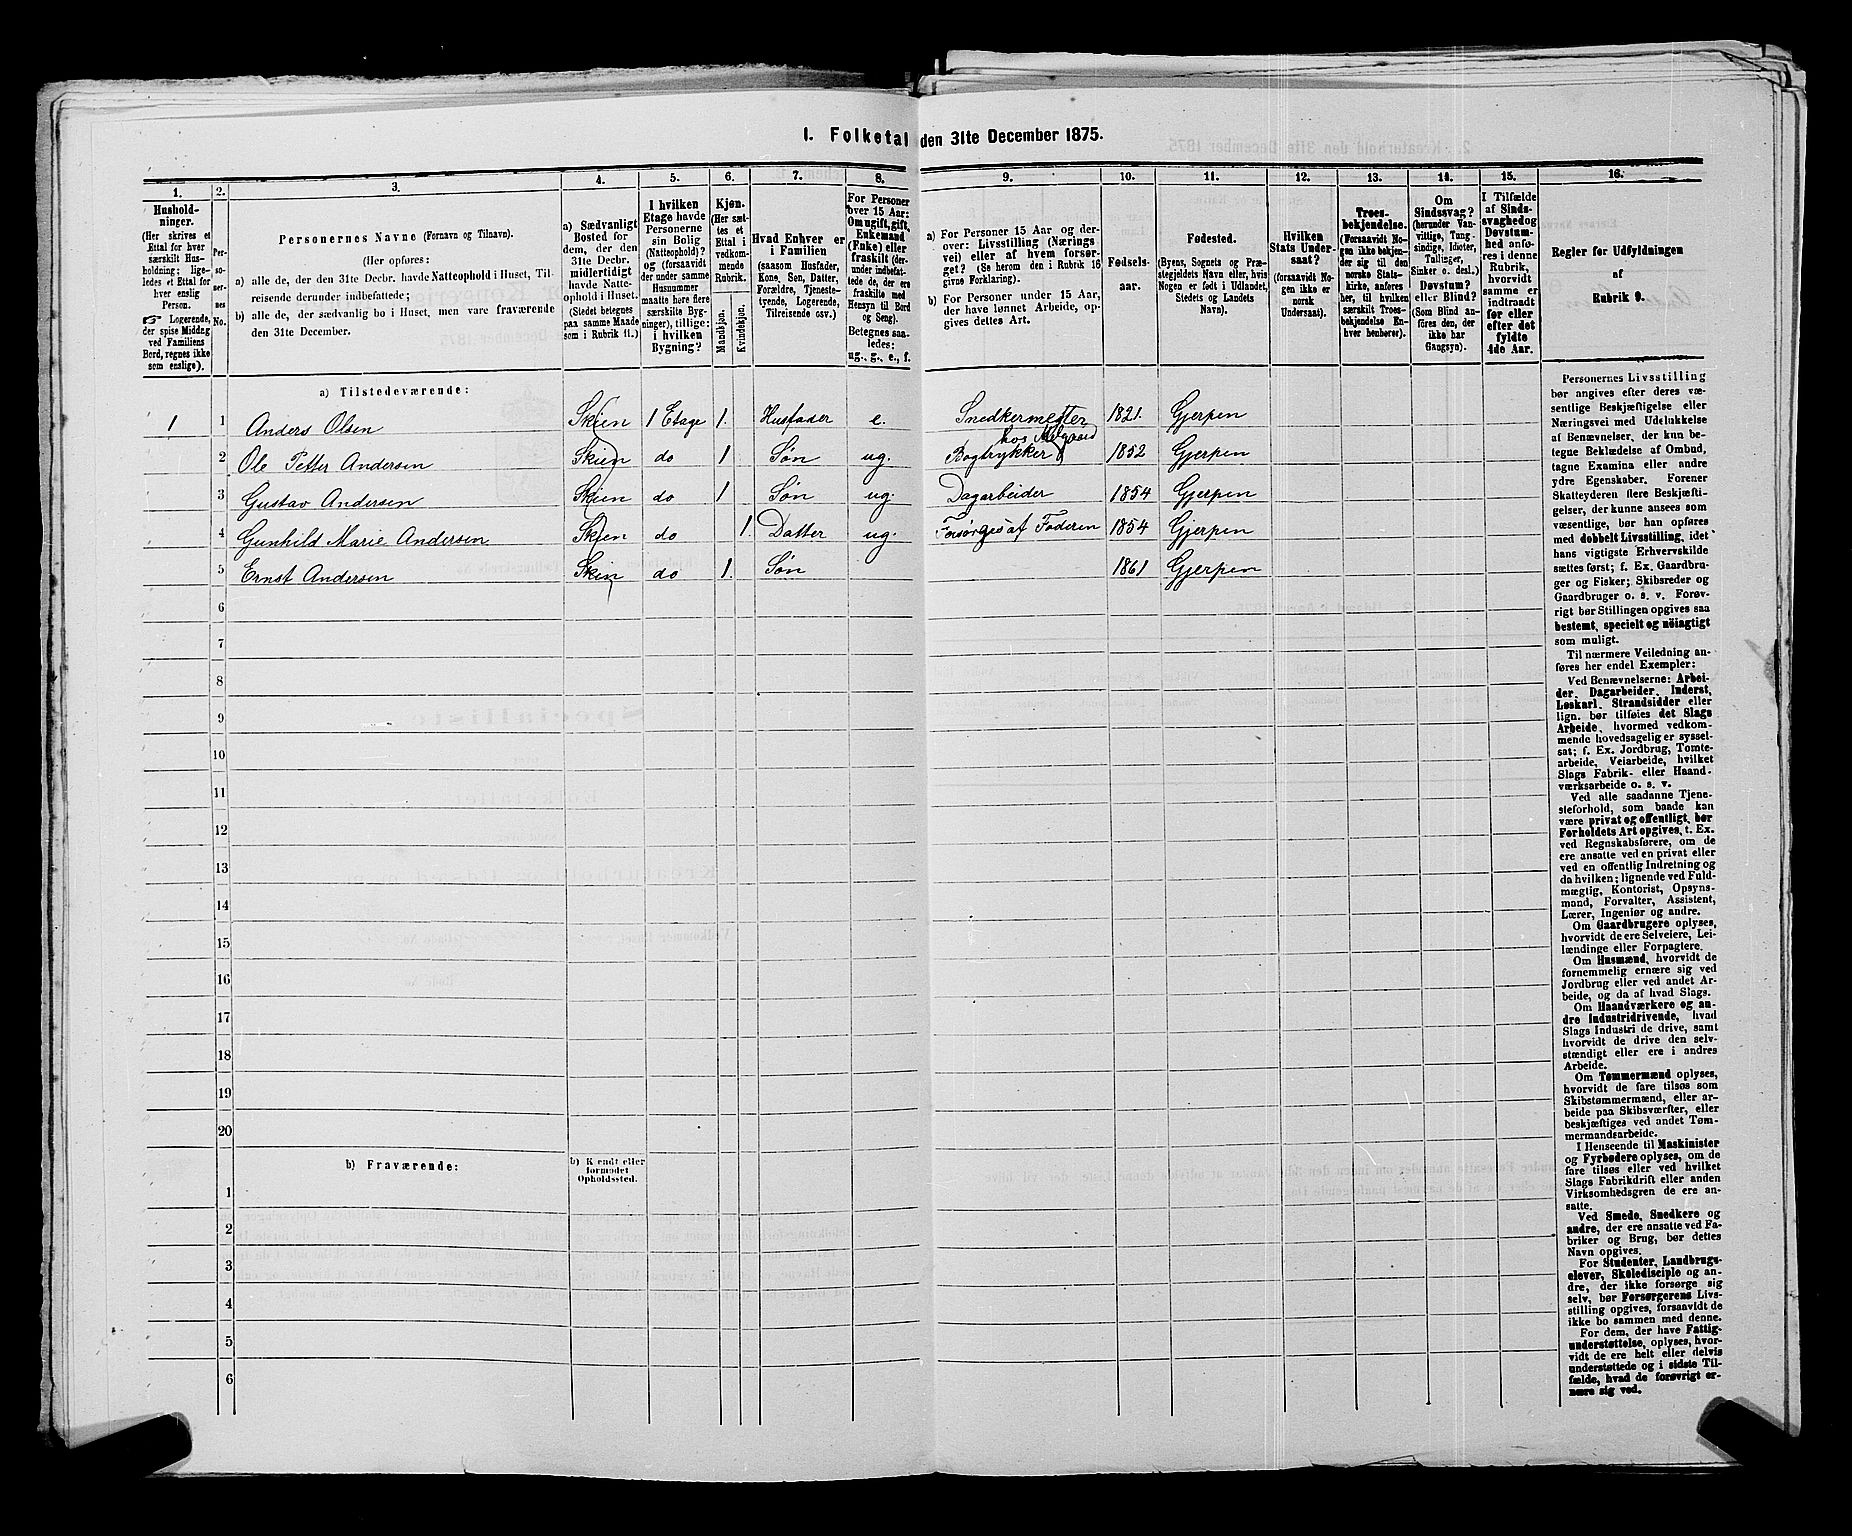 I. Folketal den 31te December 1875.
1. 2. 3. 4. 5. 6. 7. 8. 9. 10. 11. 12. 13. 14. 15. 16.
Hushold-
ninger.
(Her skrives et
Ettal for hver
særskilt Hus-
holdning; lige-
ledes et Ettal for
hver enslig
Person.
☞ Logerende,
der spise Middag
ved Familiens
Bord, regnes ikke
som enslige).
Per-
so-
ner-
nes
No.
Personernes Navne (Fornavn og Tilnavn).
(Her opføres:
a) alle de, der den 31te Decbr. havde Natteophold i Huset, Til-
reisende derunder indbefattede;
b) alle de, der sædvanlig bo i Huset, men vare fraværende
den 31te December.
a) Sædvanligt
Bosted for
dem, der den
31te Decbr.
midlertidigt
havde Natte-
ophold i Huset.
(Stedet betegnes
paa samme Maade
som i Rubrik 11.)
I hvilken
Etage havde
Personerne
sin Bolig
(Natteophold)?
og (forsaavidt
der under samme
Husnummer
maatte høre flere
særskilte Byg-
ninger), tillige:
i hvilken
Bygning?
Kjøn.
(Her sæt-
tes et
Ettal i
vedkom-
mende
Rubrik.
Mandkjøn.
Kvindekjøn.
Hvad Enhver er
i Familien
(saasom Husfader,
Kone, Søn, Datter,
Forældre, Tjeneste-
tyende, Logerende,
Tilreisende osv.)
For Personer
over 15 Aar:
Om ugift, gift,
Enkemand
(Enke) eller
fraskilt (der-
under indbefat-
tede de, der ere
fraskilte med
Hensyn til Bord
og Seng).
Betegnes saa-
ledes:
ug., g., e., f.
a) For Personer 15 Aar og der-
over: Livsstilling (Nærings-
vei) eller af hvem forsør-
get? (Se herom den i Rubrik 16
givne Forklaring).
b) For Personer under 15 Aar,
der have lønnet Arbeide, op-
gives dettes Art.
Fødsels-
aar.
Fødested.
(Byens, Sognets og Præ-
stegjeldets Navn eller, hvis
Nogen er født i Udlandet,
Stedets og Landets
Navn).
Hvilken
Stats Under-
saat?
(forsaavidt No-
gen ikke er
norsk
Undersaat).
Troes-
bekjendelse.
(Forsaavidt No-
gen ikke bekjen-
der sig til den
norske Stats-
kirke, anføres
her, til hvilken
særskilt Troes-
bekjendelse En-
hver henhører).
Om
Sindssvag?
(herunder Van-
vittige, Tung-
sindige, Idioter,
Tullinger,
Sinker o. desl.)
Døvstum?
eller Blind?
(Som Blind an-
føres den, der
ikke har
Gangsyn).
I Tilfælde
af Sinds-
svaghed og
Døvstum-
hed anfø-
res i denne
Rubrik,
hvorvidt
samme er
indtraadt
før eller
efter det
fyldte
4de Aar.
Regler for Udfyldningen
af
Rubrik 9.
a) Tilstedeværende:
1 1 Anders Olsen Skien 1 Etage 1. Husfader e. Snedkermester 1821. Gjerpen
2 Ole Petter Andersen Skien do 1 Søn ug. Bogtrykker hos Melgaard 1852 Gjerpen
3 Gustav Andersen Skien do 1 Søn ug. Dagarbeider 1854 Gjerpen
4 Gunhild Marie Andersen Skien do 1. Datter ug. Forsørges af Faderen 1854 Gjerpen
5 Ernst Andersen Skien do 1. Søn 1861 Gjerpen
6
7
8
9
10
11
12
13
14
15
16
17
18
19
20
b) Fraværende:
b) Kjendt eller
formodet
Opholdssted.
1
2
3
4
5
6
Personernes Livsstilling
bør angives efter deres væ-
sentlige Beskjæftigelse eller
Næringsvei med Udelukkelse
af Benævnelser, der kun be-
tegne Beklædelse af Ombud,
tagne Examina eller andre
ydre Egenskaber. Forener
Skatteyderen flere Beskjæfti-
gelser, der kunne ansees som
væsentlige, bør han opføres
med dobbelt Livsstilling, idet
hans vigtigste Erhvervskilde
sættes først; f. Ex. Gaardbru-
ger og Fisker; Skibsreder og
Gaardbruger o. s. v. Forøv-
rigt bør Stillingen opgives saa
bestemt, specielt og nöiagtigt
som muligt.
Til nærmere Veiledning an-
føres her endel Exempler:
Ved Benævnelserne: Arbei-
der, Dagarbeider, Inderst,
Løskarl, Strandsidder eller
lign. bør tilføies det Slags
Arbeide, hvormed vedkom-
mende hovedsagelig er syssel-
sat; f. Ex. Jordbrug, Tomte-
arbeide, Veiarbeide, hvilket
Slags Fabrik- eller Haand-
værksarbeide o. s. v.
Ved alle saadanne Tjene-
steforhold, som baade kan
være privat og offentligt, bør
Forholdets Art opgives, t. Ex.
ved Regnskabsførere, om de
ere ansatte ved en privat eller
ved en offentlig Indretning og
da hvilken; lignende ved Fuld-
mægtig, Kontorist, Opsyns-
mand, Forvalter, Assistent,
Lærer, Ingeniør og andre.
Om Gaardbrugere oplyses,
hvorvidt de ere Selveiere, Lei-
lændinge eller Forpagtere.
Om Husmænd, hvorvidt de
fornemmelig ernære sig ved
Jordbrug eller ved andet Ar-
beide, og da af hvad Slags.
Om Haandværkere og an-
dre Industridrivende, hvad
Slags Industri de drive, samt
hvorvidt de drive den selv-
stændigt eller ere i andres
Arbeide.
Om Tømmermænd oplyses,
hvorvidt de fare tilsøs som
Skibstømmermænd, eller ar-
beide paa Skibsværfter, eller
beskjæftiges ved andet Tøm-
mermandsarbeide.
I Henseende til Maskinister
og Fyrbødere oplyses, om de
fare tilsøs eller ved hvilket
Slags Fabrikdrift eller anden
Virksomhedsgren de ere an-
satte.
Ved Smede, Snedkere og
andre, der ere ansatte ved Fa-
briker og Brug, bør dettes
Navn opgives.
For Studenter, Landbrugs-
elever, Skoledisciple og an-
dre, der ikke forsørge sig
selv, bør Forsørgerens Livs-
stilling opgives, forsaavidt de
ikke bo sammen med denne.
For dem, der have Fattig-
understøttelse, oplyses, hvor-
vidt de ere helt eller delvis
understøttede og i sidste Til-
fælde, hvad de forøvrigt er-
nære sig ved.